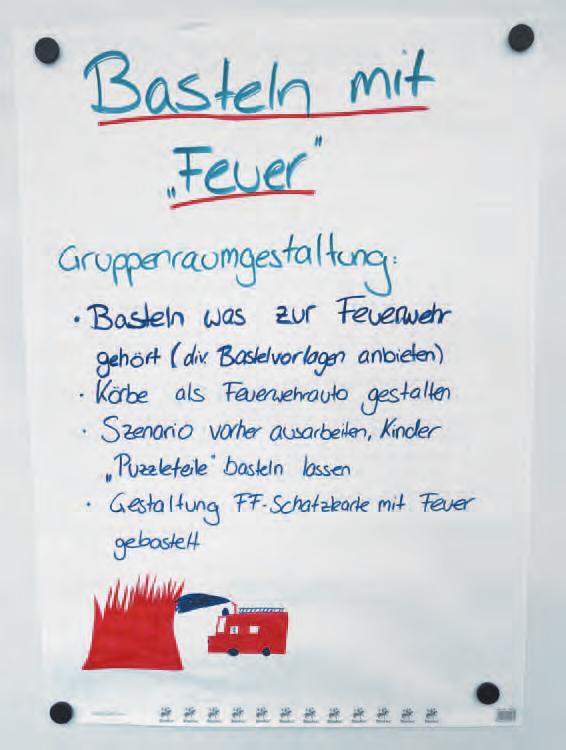 Basteln mit
„Feuer"
Gruppenraumgestaltung:
• Basteln was zur Feuerwehr
gehört (div. Bastelvorlagen anbieten)
• Körbe als Feuerwehrauto gestalten
• Szenario vorher ausarbeiten, Kinder
„Puzzleteile" basteln lassen
• Gestaltung FF-Schatzkarte mit Feuer
gebastelt